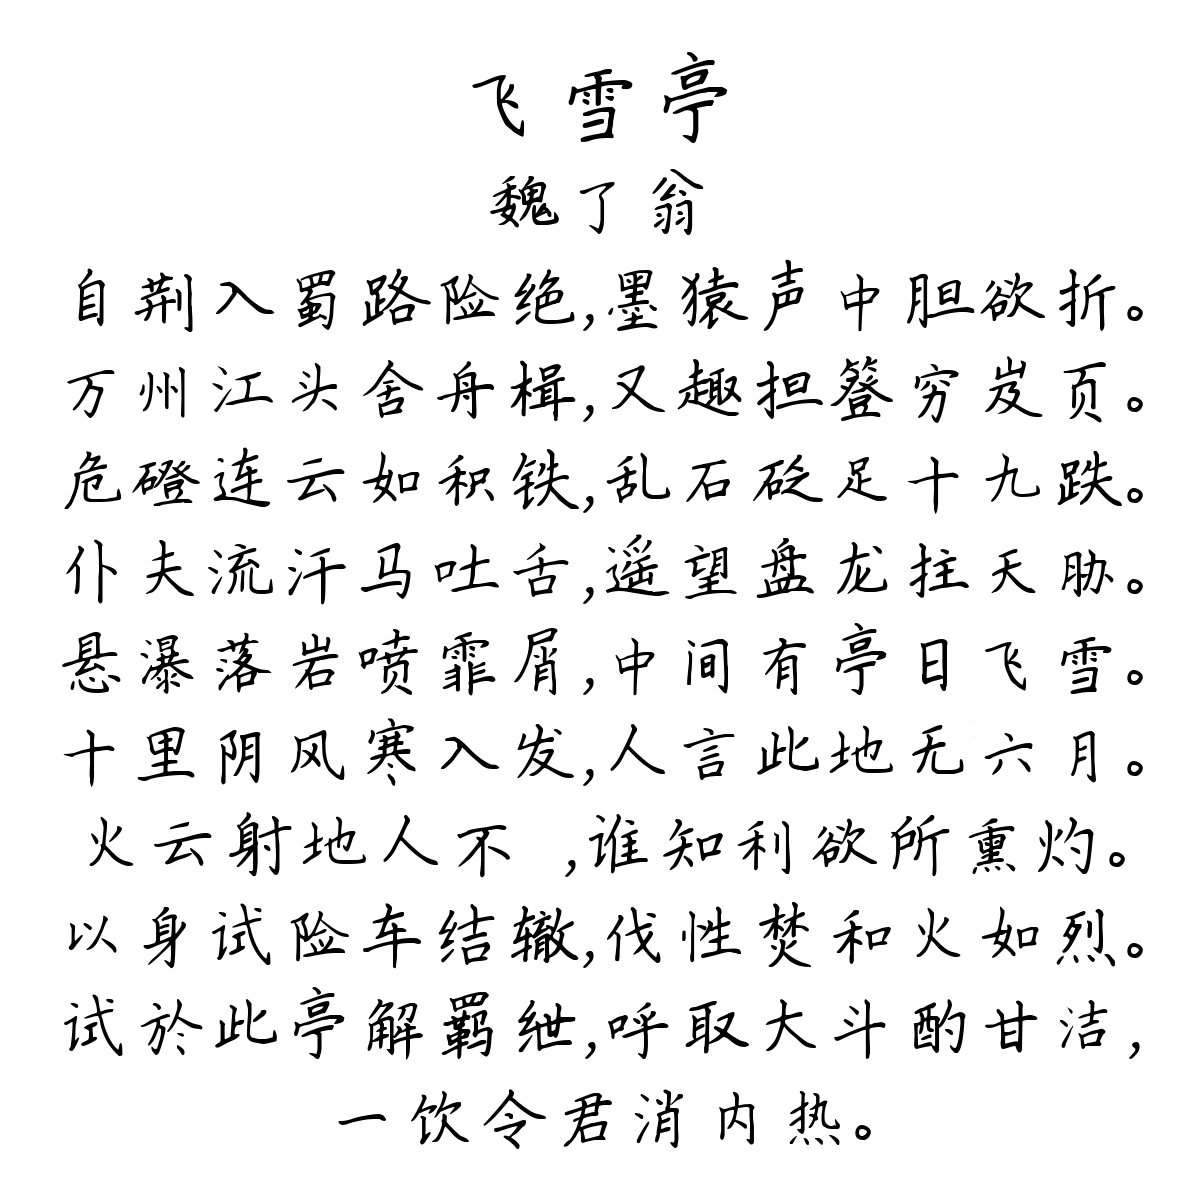 飞雪亭
魏了翁
自荆入蜀路险绝,墨猿声中胆欲折。
万州江头舍舟楫,又趣担簦穷岌页。
危磴连云如积铁,乱石砭足十九跌。
仆夫流汗马吐舌,遥望盘龙拄天胁。
悬瀑落岩喷霏屑,中间有亭日飞雪。
十里阴风寒入发,人言此地无六月。
火云射地人不 ,谁知利欲所熏灼。
以身试险车结辙,伐性焚和火如烈。
试於此亭解羁绁,呼取大斗酌甘洁,
一饮令君消内热。